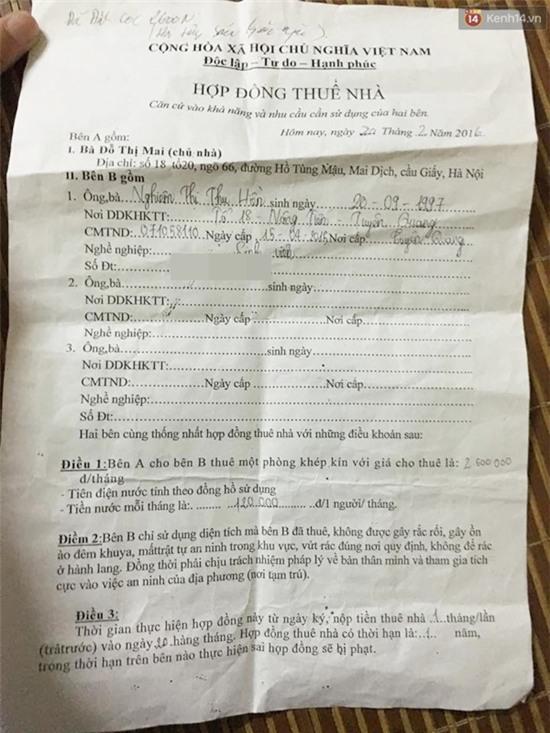 14 Kenh14.vn
Đã Đặt cọc
CỘNG HÒA XÃ HỘI CHỦ NGHĨA VIỆT NAM
Độc lập – Tự do – Hạnh phúc
HỢP ĐỒNG THUÊ NHÀ
Căn cứ vào khả năng và nhu cầu cần sử dụng của hai bên.
Hôm nay, ngày 20 Tháng 2 Năm 2016
Bên A gồm:
I. Bà Đỗ Thị Mai (chủ nhà)
Địa chỉ: số 18 tổ20, ngõ 66, đường Hồ Tùng Mậu, Mai Dịch, cầu Giấy, Hà Nội
II. Bên B gồm
1. Ông,bà Nghiêm Thị Thu Hền sinh ngày 20-09-1997
Nơi DDKHKTT: Tổ 18 - Nông Tiến - Tuyên Quang
CMTND: 071058110 Ngày cấp 15-04-2015 Nơi cấp Tuyên Quang
Nghề nghiệp: Sinh viên
Số Đt:
2. Ông,bà sinh ngày
Nơi DDKHKTT:
CMTND: Ngày cấp Nơi cấp
Nghề nghiệp:
3. Ông,bà sinh ngày
Nơi DDKHKTT:
CMTND: Ngày cấp Nơi cấp
Nghề nghiệp:
Số Đt:
Hai bên cùng thống nhất hợp đồng thuê nhà với những điều khoản sau:
Điều 1:Bên A cho bên B thuê một phòng khép kín với giá cho thuê là: 2 600 000
đ/tháng
- Tiên điện nước tính theo đồng hồ sử dụng
- Tiền nước mỗi tháng là: 120.000 đ/1 người/ tháng.
Điềm 2:Bên B chỉ sử dụng diện tích mà bên B đã thuê, không được gây rắc rối, gây ồn
ào đêm khuya, mấttrật tự an ninh trong khu vực, vứt rác đúng nơi quy định, không để rác
ở hành lang. Đồng thời phải chịu trách nhiệm pháp lý về bản thân mình và tham gia tích
cực vào việc an ninh của địa phương (nơi tạm trú).
Điều 3:
Thời gian thực hiện hợp đồng này từ ngày ký, nộp tiền thuê nhà 1 tháng/lần
(trảtrước) vào ngày 20 hàng tháng. Hợp đồng thuê nhà có thời hạn là: 1 năm,
trong thời hạn trên bên nào thực hiện sai hợp đồng sẽ bị phạt.